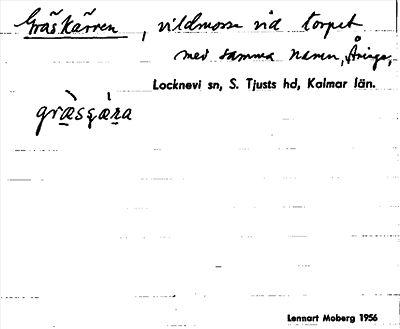 Gräskärren, vildmosse vid torpet
med samma namn, Åninge,
Locknevi sn, S. Tjusts hd, Kalmar län.
græ̀sçæ̀ra
Lennart Moberg 1956